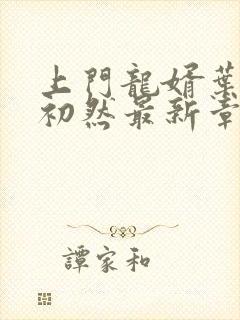 上門龍婿葉
初然最新章
譚家和